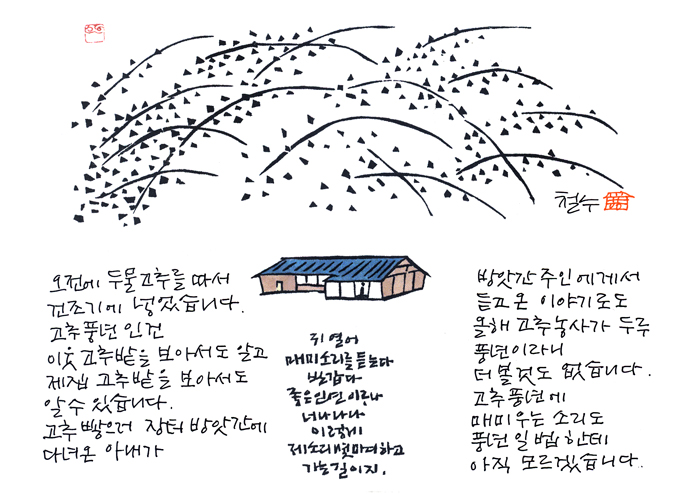 철수
오전에 두물고추를 따서
건조기에 넣었습니다.
고추풍년 인건
이웃 고추밭을 보아서도 알고
제집 고추밭을 보아서도
알 수 있습니다.
고추 빻으러 장터 방앗간에
다녀온 아내가
귀 열어
매미소리를 듣는다
반갑다
너나나나
이렇게
제소리 몇마디하고
가는길이지.
방앗간 주인에게서
듣고 온 이야기로도
올해 고추농사가 두루
풍년이라니
더 볼것도 없습니다.
고추풍년에
매미우는 소리도
풍년일 법 한데
아직 모르겠습니다.